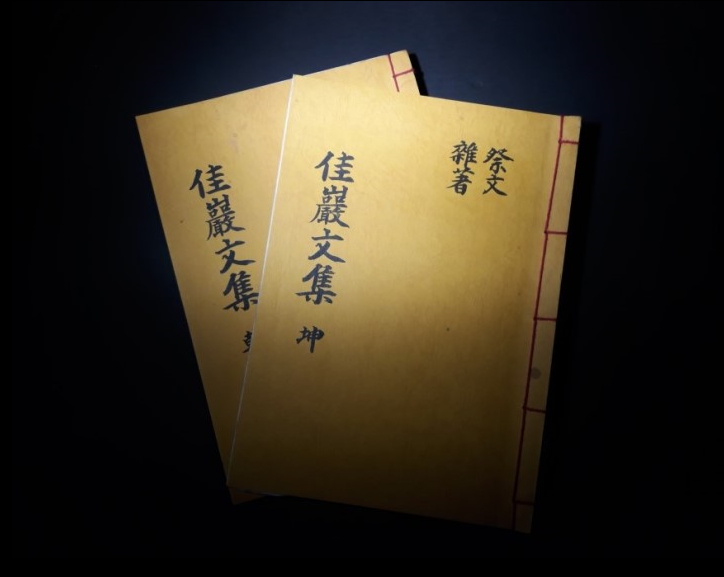 祭文
雜著
佳巖文集 坤
佳巖文集